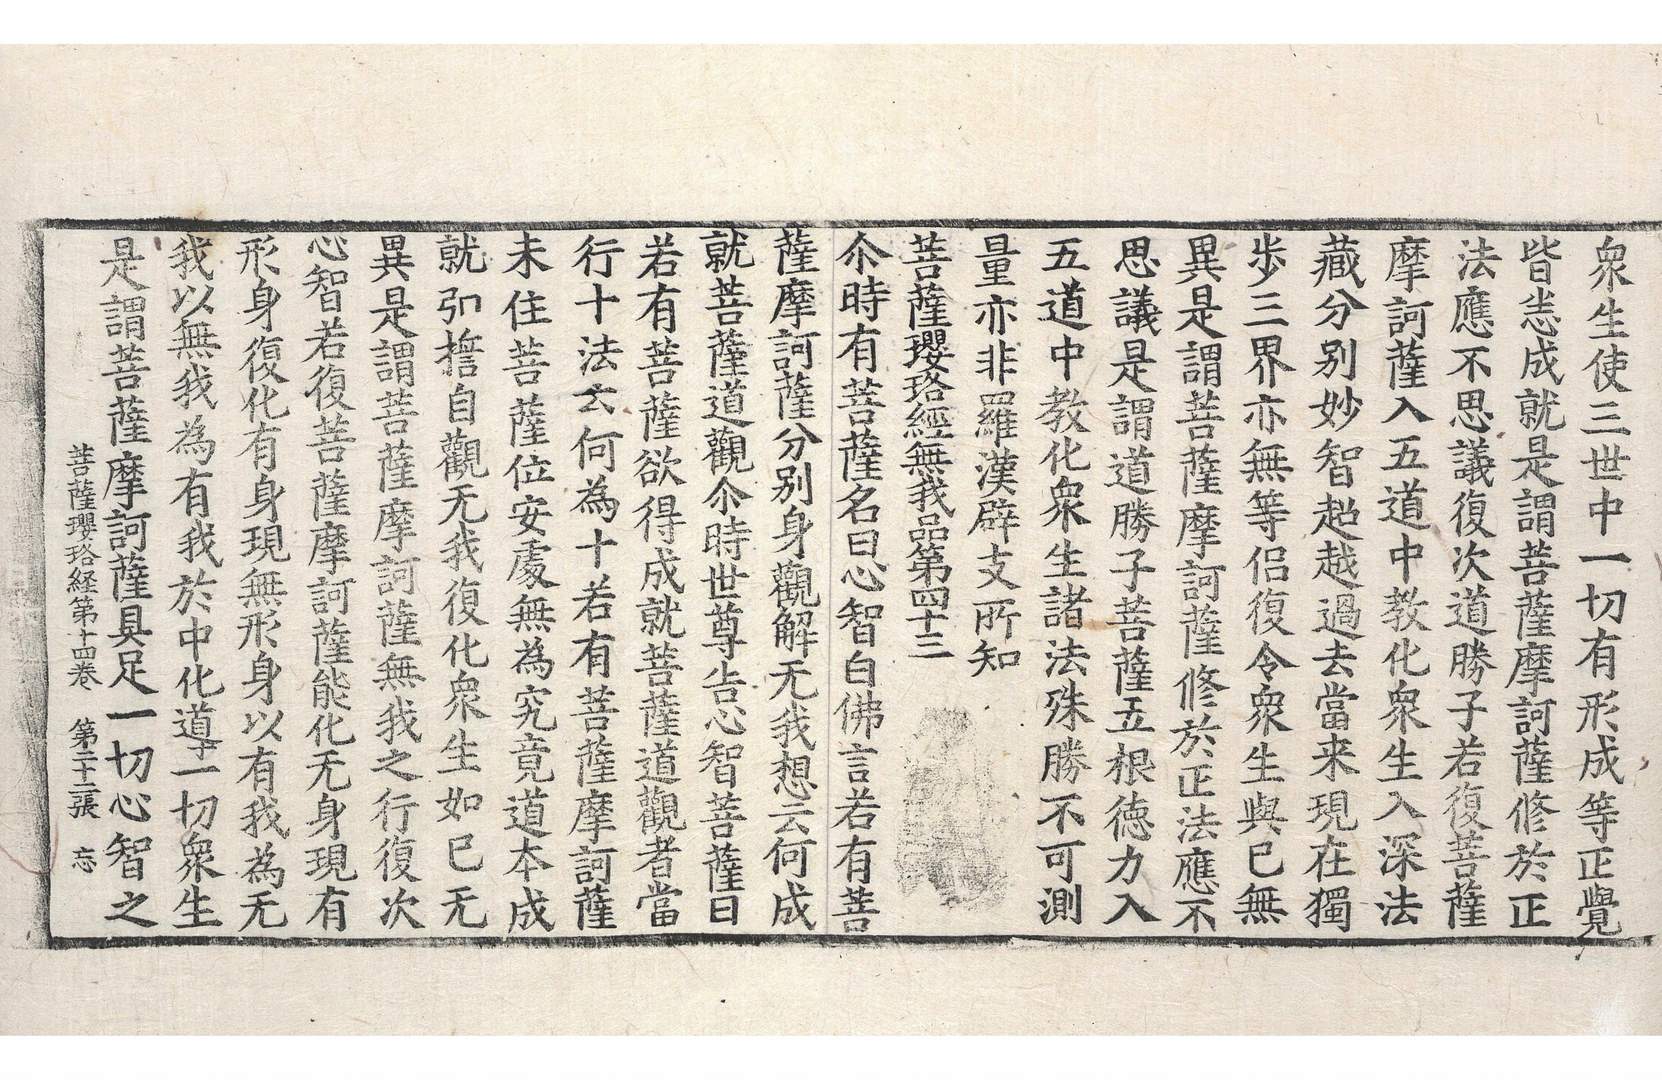 衆生使三世中一切有形成等正覺
皆悉成就是謂菩薩摩訶薩修於正
法應不思議復次道勝子若復菩薩
摩訶薩入五道中教化衆生入深法
藏分别妙智超越過去當来現在獨
步三界亦無等侣復令衆生與已無
異是謂菩薩摩訶薩修於正法應不
思議是謂道勝子菩薩五根德力入
五道中教化衆生諸法殊勝不可測
量亦非羅漢辟支所知
菩薩瓔珞經無我品第四十三
尒時有菩薩名曰心智白佛言若有菩
薩摩訶薩分别身觀解无我想云何成
就菩薩道觀尒時世尊告心智菩薩曰
若有菩薩欲得成就菩薩道觀者當
行十法云何為十若有菩薩摩訶薩
未住菩薩位安處無為究竟道本成
就弘誓自觀无我復化衆生如已无
異是謂菩薩摩訶薩無我之行復次
心智若復菩薩摩訶薩能化无身現有
形身復化有身現無形身以有我為无
我以無我為有我於中化導一切衆生
是謂菩薩摩訶薩具足一切心智之
菩薩瓔珞経第十四卷 第三十二張 忘